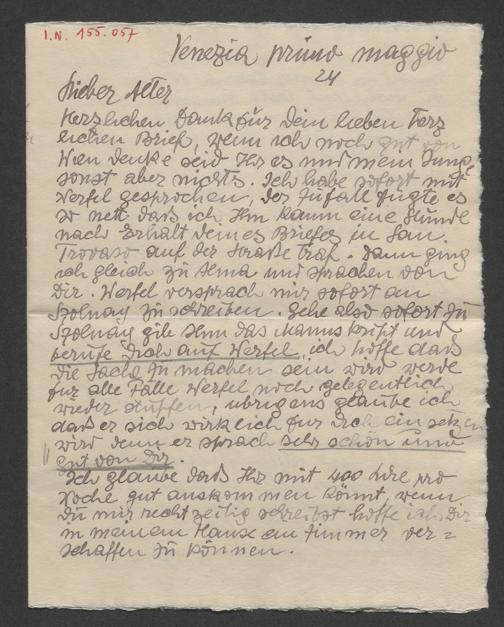 I.N. 155.057
Venezia primo maggio
24
Lieber Alter
Herzlichen Dank für Dein lieben herz
lichen Brief, wenn ich noch gut von
Wien denke seid Ihr es und mein Junge
sonst aber nichts. Ich habe sofort mit
Werfel gesprochen, der Zufall fügte es
so nett daß ich Ihn kaum eine Stunde
nach Erhalt deines Briefes in San.
Trovaso auf der Straße traf. Dann ging
ich gleich zu Alma und sprachen von
Dir. Werfel versprach mir sofort an
Szolnay zu schreiben. Gehe also sofort zu
Szolnay gib Ihm das Manuskript und
berufe Dich auf Werfel, ich hoffe daß
die Sache zu machen sein wird werde
für alle Fälle Werfel noch gelegentlich
wieder , übrigens glaube ich
daß er sich wirklich für Dich einsetzen
wird denn er sprach sehr schön und
gut von Dir.
Ich glaube daß Ihr mit 400 Lire pro
Woche gut auskommen könnt, wenn
Du mir recht zeitig schreibst hoffe ich Dir
in meinem Hause ein Zimmer ver=
schaffen zu können.